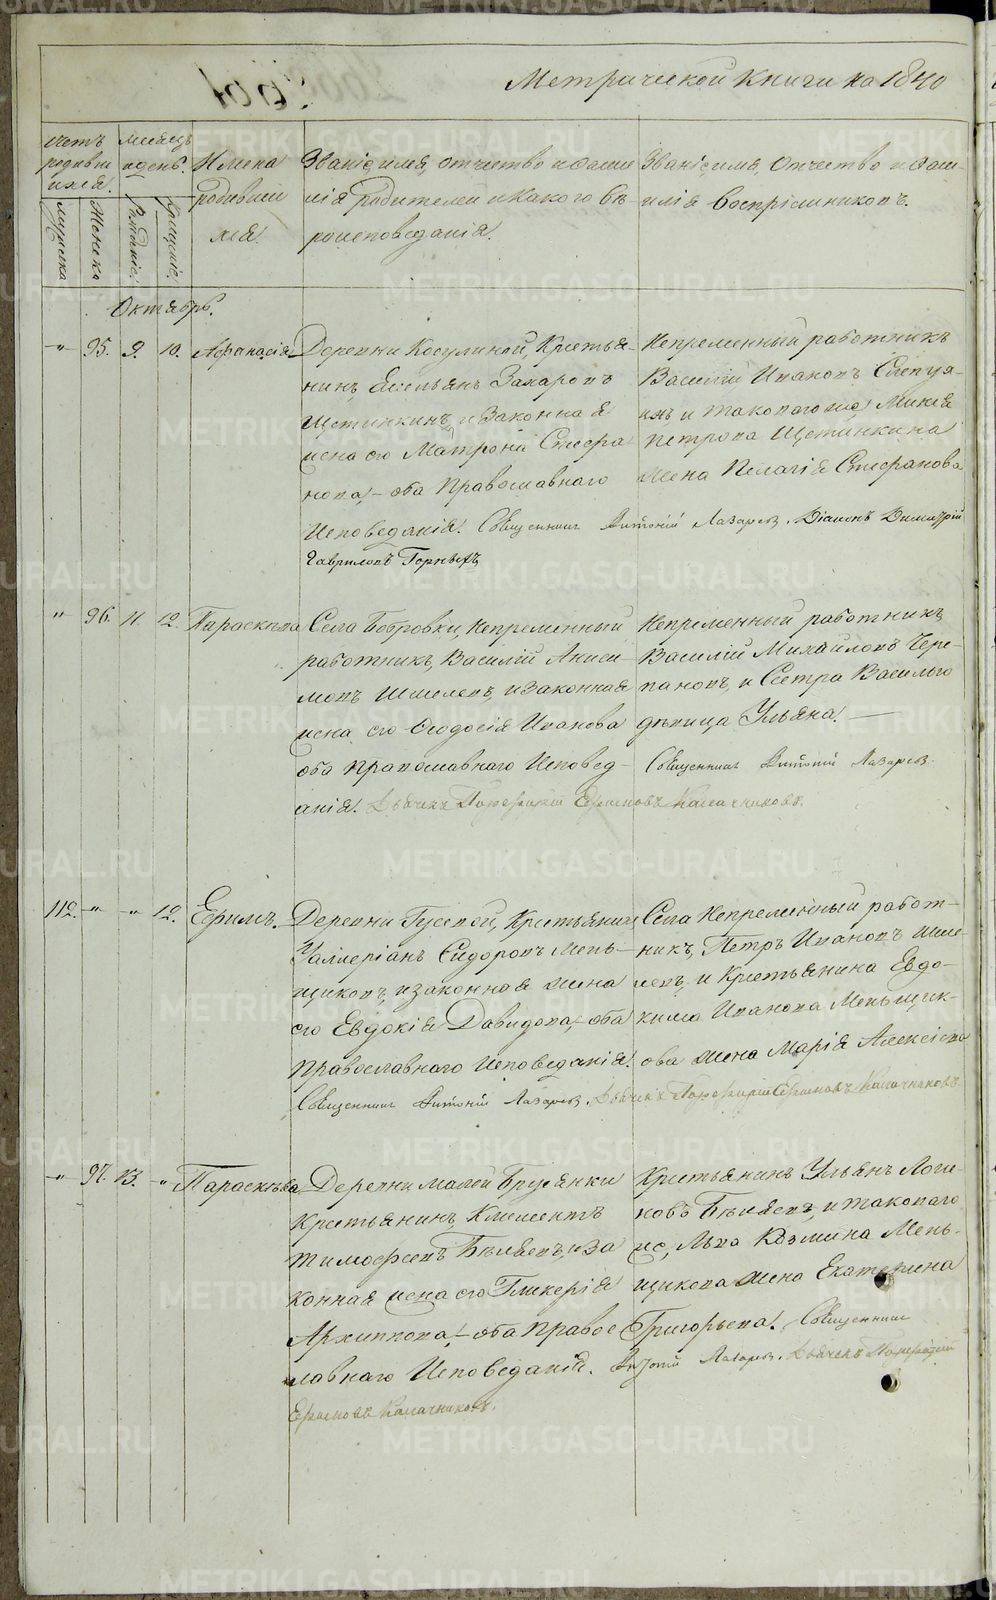 Метрической Книги на 1840
Счетъ родившихся.
Месяцъ и день.
Имена родившихся.
Званіе, имя, отчество и фамилія родителей и какого вѣроисповеданія.
Званіе, имя, отчество и фамилія Воспріемниковъ.
мужеска
Женска
Рожденіе.
Крещеніе.
Октябрь.
" 95. 9. 10. Афанасія
Деревни Косулиной, Крестья-
нинъ, Емельянъ Захаровъ
Щетинкинъ, и Законная
жена его Матрона Стефа
нова, – оба Православнаго
Исповеданія. Священникъ Антоній Лазаревъ. Діаконъ Димитрій
Гавриловъ Горныхъ
Непременный работникъ
Василій Ивановъ
и таковаго же,
Петрова Щетинкина
жена Пелагія Стефанова
" 96. 11. 12. Параскева
Села Бобровки, Непременный
работникъ, Василій Аниси-
мовъ Шмелевъ, и законная
жена его Феодосія Иванова
оба православнаго Исповед-
анія. Дьячекъ Порфирій Ефимовъ Калачниковъ.
Непременный работникъ,
Василій Михайловъ Чере-
пановъ, и Сестра Василья
девица Ульяна. —
Священникъ Антоній Лазаревъ.
112. " " 12. Ефимъ.
Деревни Гусевой, Крестьянинъ
Валлеріанъ Сидоровъ Мень-
щиковъ, и законная жена
его Евдокія Давидова, – оба
Православнаго исповеданія.
Священникъ Антоній Лазаревъ. Дьячекъ Порфирій Ефимовъ Калачниковъ.
Села Непременный работ-
никъ, Петръ Ивановъ Шме-
левъ, и Крестьянина Евдо-
кима Иванова Меньщик-
ова жена Марія Алексіева
" 97. 13. " Параскева
Деревни малой Брусянки
Крестьянинъ, Климентъ
Тимофеевъ Бѣляевъ, и за
конная жена его Гликерія
Архиппова, – оба Правос
лавнаго Исповеданія.
Ефимовъ Калачниковъ.
Крестьянинъ Ульянъ Логи-
новъ Бѣляевъ, и таковаго
же, Льва Козмина Мень-
щикова жена Екатерина
Григорьева. Священникъ
Антоній Лазаревъ. Дьячекъ Порфирій
METRIKI.GASO-URAL.RU